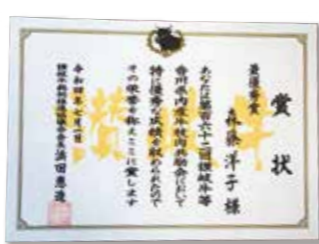 賞状
最優秀賞
森藤洋子様
あなたは第百六十二回讃岐牛等
香川県内産牛枝肉共励会において
特に優秀な成績を収められたので
その栄誉を称えここに賞します
令和四年七月一日
会長 浜田恵造